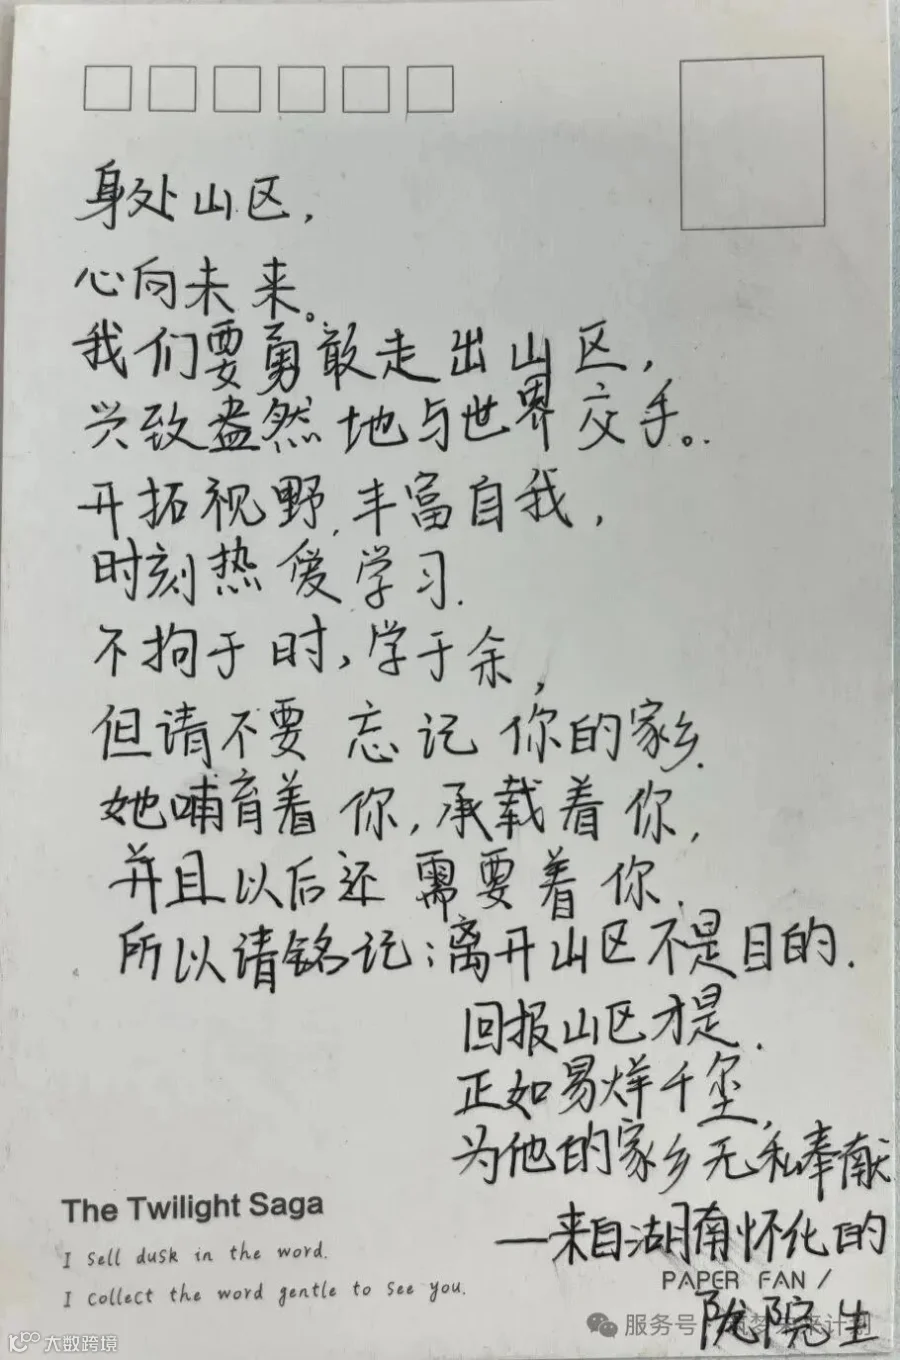 身处山区,
心向未来。
我们要勇敢走出山区,
兴致盎然地与世界交手。
开拓视野,丰富自我,
时刻热爱学习.
不拘于时,学于余,
但请不要忘记你的家乡.
她哺育着你,承载着你,
并且以后还需要着你.
所以请铭记:离开山区不是目的.
回报山区才是.
正如易烊千玺,
为他的家乡无私奉献
—来自湖南怀化的
院生
The Twilight Saga
I sell dusk in the word.
I collect the word gentle to see you.
PAPER FAN /
服务号
来计划
大数跨境